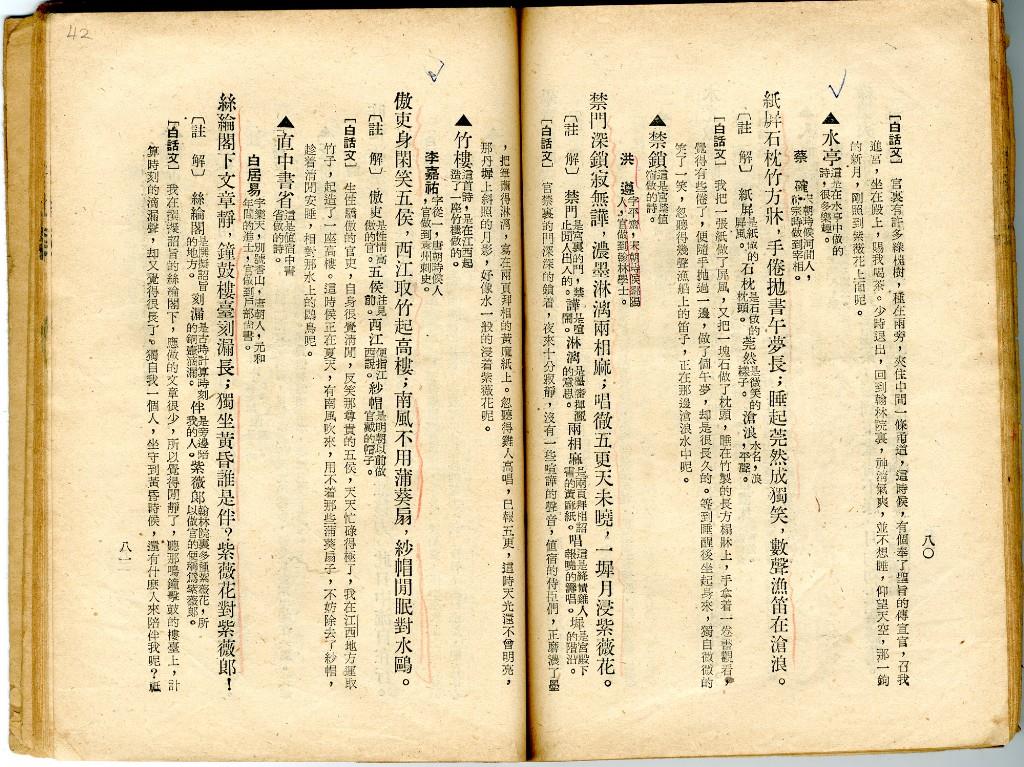 〔白話文〕 宮裏有許多綠槐樹，種在兩旁，夾住中間一條甬道，這時候，有個奉了聖旨的傳宣官，召我
進宮，坐在殿上，賜我喝茶。少時退出，回到翰林院裏，神清氣爽，並不想睡，仰望天空，那一鉤
的新月，剛照到紫薇花上面呢。
▲水亭 這是在水亭中做的詩，很多樂趣。
蔡 確 宋朝時候河間人，神宗時做到宰相。
紙屏石枕竹方牀，手倦拋書午夢長；睡起莞然成獨笑，數聲漁笛在滄浪。
〔註 解〕 紙屏 是紙做的屏風。 石枕 是石做的枕頭。 莞然 是微笑的樣子。 滄浪 水名，浪，平聲。
〔白話文〕 我把一張紙做了屏風，又把一塊石做了枕頭，睡在竹製的長方榻牀上，手拿着一卷書觀看，
覺得有些倦了，便隨手拋過一邊，做了個午夢，却是很長久的。等到睡醒後坐起身來，獨自微微的
笑了一笑，忽聽得幾聲漁船上的笛子，正在那邊滄浪水中呢。
▲禁鎖 這是宮禁值宿做的詩。
洪 遵 字
人，官做到翰林學士。
禁門深鎖寂無譁，濃墨淋漓兩相麻；唱徹五更天未曉，一墀月浸紫薇花。
〔註 解〕 禁門 是宮裏的門，禁止閒人出入的。 譁 是喧鬧。 淋漓 是墨瀋揮灑的意思。 兩相麻 是兩頁拜相詔書的黃麻紙。 唱 這是絳幘雞人報曉的籌唱。 墀 是宮殿下的階沿。
〔白話文〕 官禁裏的門深深的鎖着，夜來十分寂靜，沒有一些喧譁的聲音，值宿的侍臣們，正磨濃了墨
八〇
，把筆蘸得淋漓，寫在兩頁拜相的黃麻紙上。忽聽得雞人高唱，已報五更，這時天光還不曾明亮，
那丹墀上斜照的月影，好像水一般的浸着紫薇花呢。
▲竹樓 這首詩，是在江西起造了一座竹樓做的。
李嘉祐 字從一，唐朝時候人，官做到袁州刺史。
傲吏身閑笑五侯，西江取竹起高樓；南風不用蒲葵扇，紗帽閒眠對水鷗。
〔註 解〕 傲吏 是性情高傲的官。 五侯 注見前。 西江 便指江西說。 紗帽 是明朝以前做官戴的帽子。
〔白話文〕 生性驕傲的官吏，自身很覺清閒，反笑那尊貴的五侯，天天忙碌得極了，我在江西地方運取
竹子，起造了一座高樓。這時候正在夏天，有南風吹來，用不着那些蒲葵扇子，不妨除去了紗帽，
趁着清閒安睡，相對那水上的鷗鳥呢。
▲直中書省 這是值宿中書省做的詩。
白居易 字樂天，別號香山，唐朝人，元和年間的進士，官做到戶部尚書。
絲綸閣下文章靜，鐘鼓樓臺刻漏長；獨坐黃昏誰是伴？紫薇花對紫薇郎！
〔註 解〕 絲綸閣 是撰擬詔旨的地方。 刻漏 是古時計算時刻的銅壺滴漏。 伴 是旁邊陪我的人。 紫薇郎 翰林院裏多種紫薇花，所以做官的便稱爲紫薇郎。
〔白話文〕 我在撰擬詔旨的絲綸閣下，應做的文章很少，所以覺得閒靜了，聽那鳴鐘擊鼓的樓臺上，計
算時刻的滴漏聲，却又覺得很長了。獨自我一個人，坐守到黃昏時候，還有什麼人來陪伴我呢？祇
八一
42